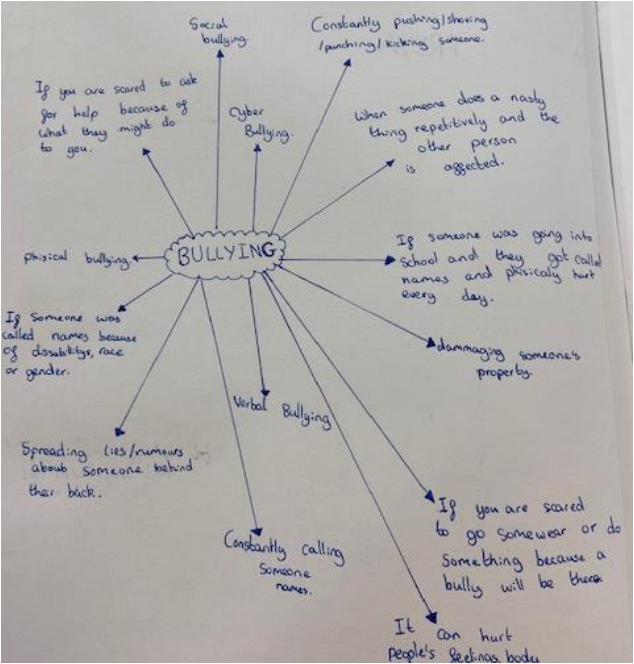 Social
bullying.
Constantly pushing/shoving
/punching/kicking someone.
If you are scared to ask
for help because of
what they might do
to you.
Cyber
Bullying.
When someone does a nasty
thing repetitively and the
other person
is affected.
BULLYING
phisical bullying.
If someone was going into
school and they got called
names and phisicaly hurt
every day.
If someone was
called names because
of dissabilitys, race
or gender.
dammaging someone's
property.
Verbal Bullying
Spreading lies/rumours
about someone behind
their back.
If you are scared
to go somewear or do
something because a
bully will be there
Constantly calling
someone
names.
It can hurt
people's feelings, body